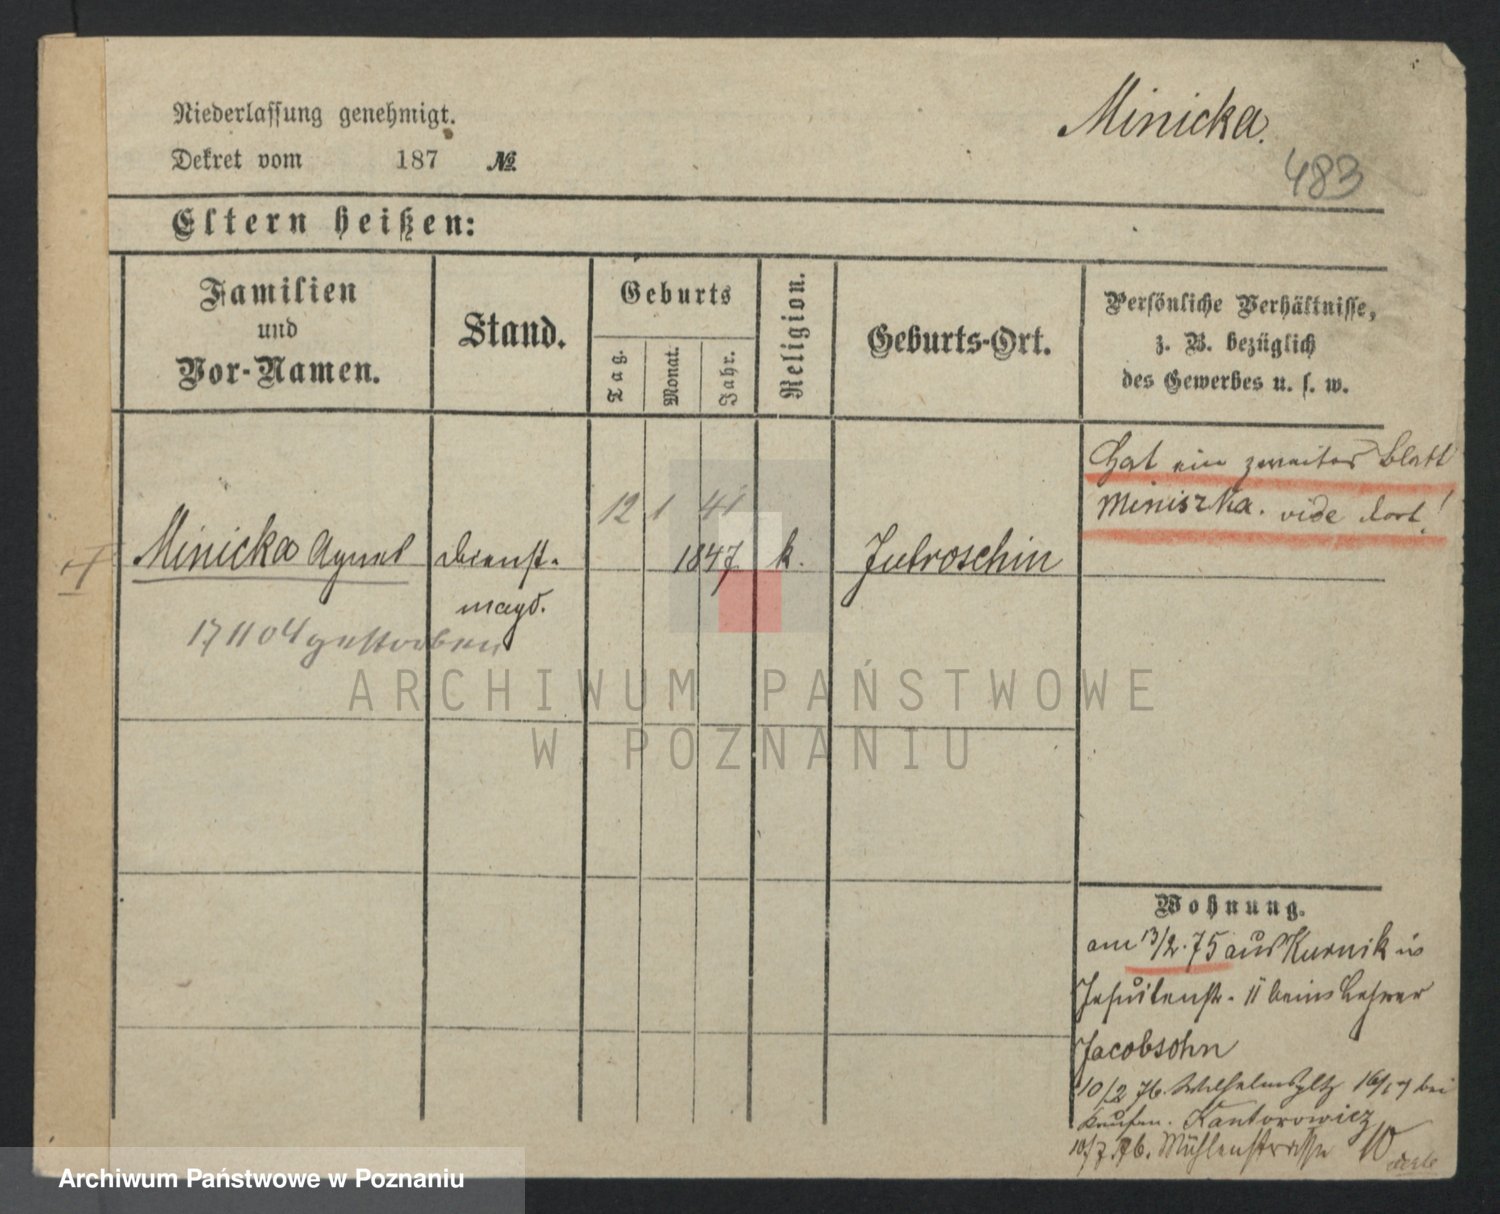 Niederlassung genehmigt.
Dekret vom 187 №
Minicka.
483
Eltern heißen:
Familien
und
Vor-Namen.
Stand.
Geburts
Tag.
Monat.
Jahr.
Religion.
Geburts-Ort.
Persönliche Verhältnisse,
z. B. bezüglich
des Gewerbes u. s. w.
Hat ein zweites Blatt
Miniszka. vide dort!
12 1 41
Minicka Agnes Dienst- 1847 k. Jutroschin
magd.
17 11 04 gestorben
ARCHIWUM PAŃSTWOWE
W POZNANIU
Wohnung.
am 13/2. 75 aus Kurnik in
Jesuitenstr. 11 beim Lehrer
Jacobsohn
10/2 76. Wilhelmspltz 16/17 bei
Kaufm. Kantorowicz
10/7. 76. Mühlenstrasse
Archiwum Państwowe w Poznaniu